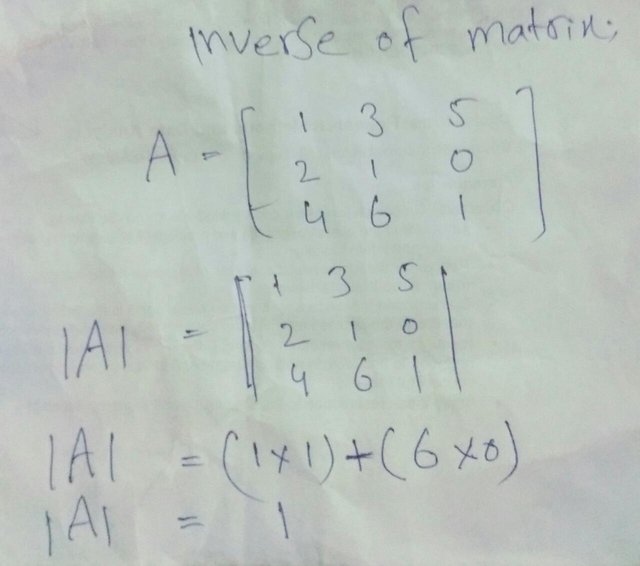 Inverse of matrix;
A = [ 1 3 5
2 1 0
4 6 1 ]
|A| = | 1 3 5
2 1 0
4 6 1 |
|A| = (1×1)+(6×0)
|A| = 1